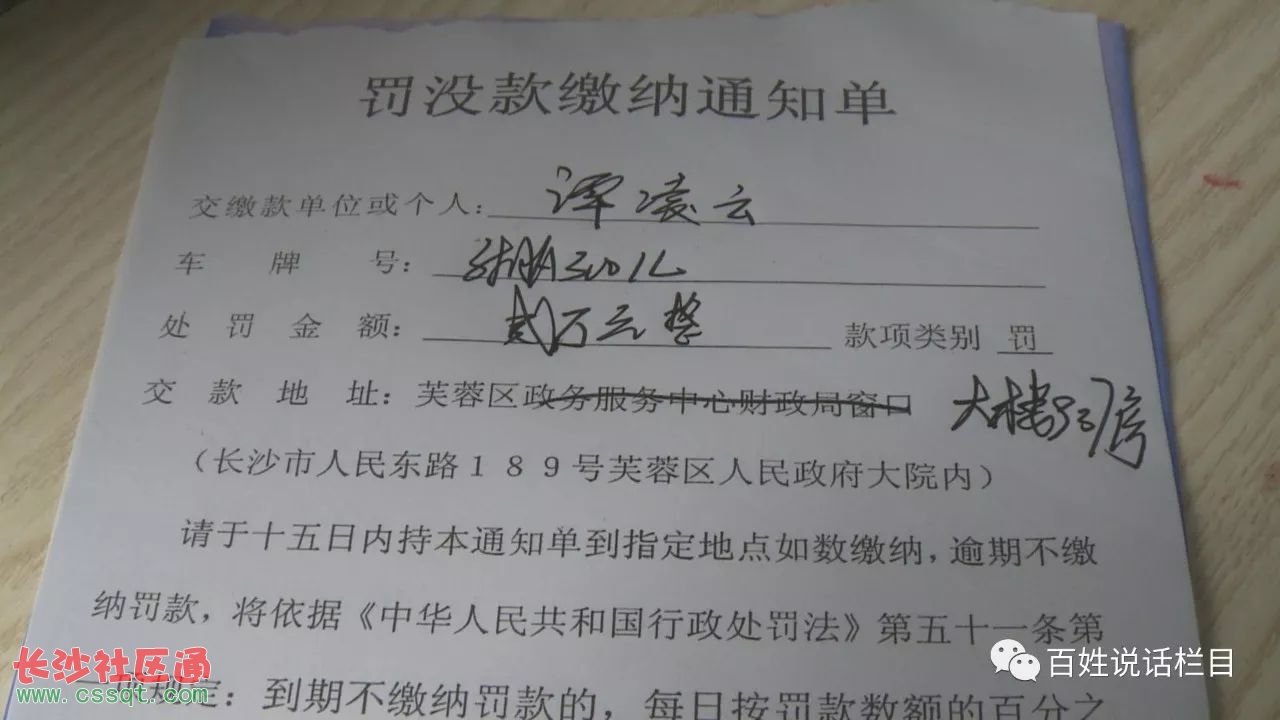 罚没款缴纳通知单
交缴款单位或个人：谭凌云
车牌号：
处罚金额：贰万元整 款项类别 罚
交款地址：芙蓉区政务服务中心财政局窗口 大楼
（长沙市人民东路１８９号芙蓉区人民政府大院内）
请于十五日内持本通知单到指定地点如数缴纳，逾期不缴
纳罚款，将依据《中华人民共和国行政处罚法》第五十一条第
规定：到期不缴纳罚款的，每日按罚款数额的百分之
长沙社区通
www.cssqt.com
百姓说话栏目